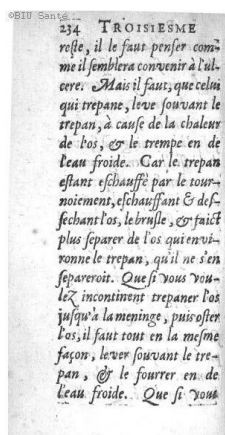 ©BIU Santé
234 TROISIESME
reste, il le faut penser com-
me il semblera convenir à l'ul-
cere. Mais il faut, que celui
qui trepane, leve souvant le
trepan, à cause de la chaleur
de l'os, & le trempe en de
l'eau froide. Car le trepan
estant eschauffé par le tour-
noiement, eschauffant & des-
sechant l'os, le brusle, & faict
plus separer de l'os qui envi-
ronne le trepan, qu'il ne s'en
separeroit. Que si vous vou-
lez incontinent trepaner l'os
jusqu'à la meninge, puis oster
l'os, il faut tout en la mesme
façon, lever souvant le tre-
pan, & le fourrer en de
l'eau froide. Que si vous